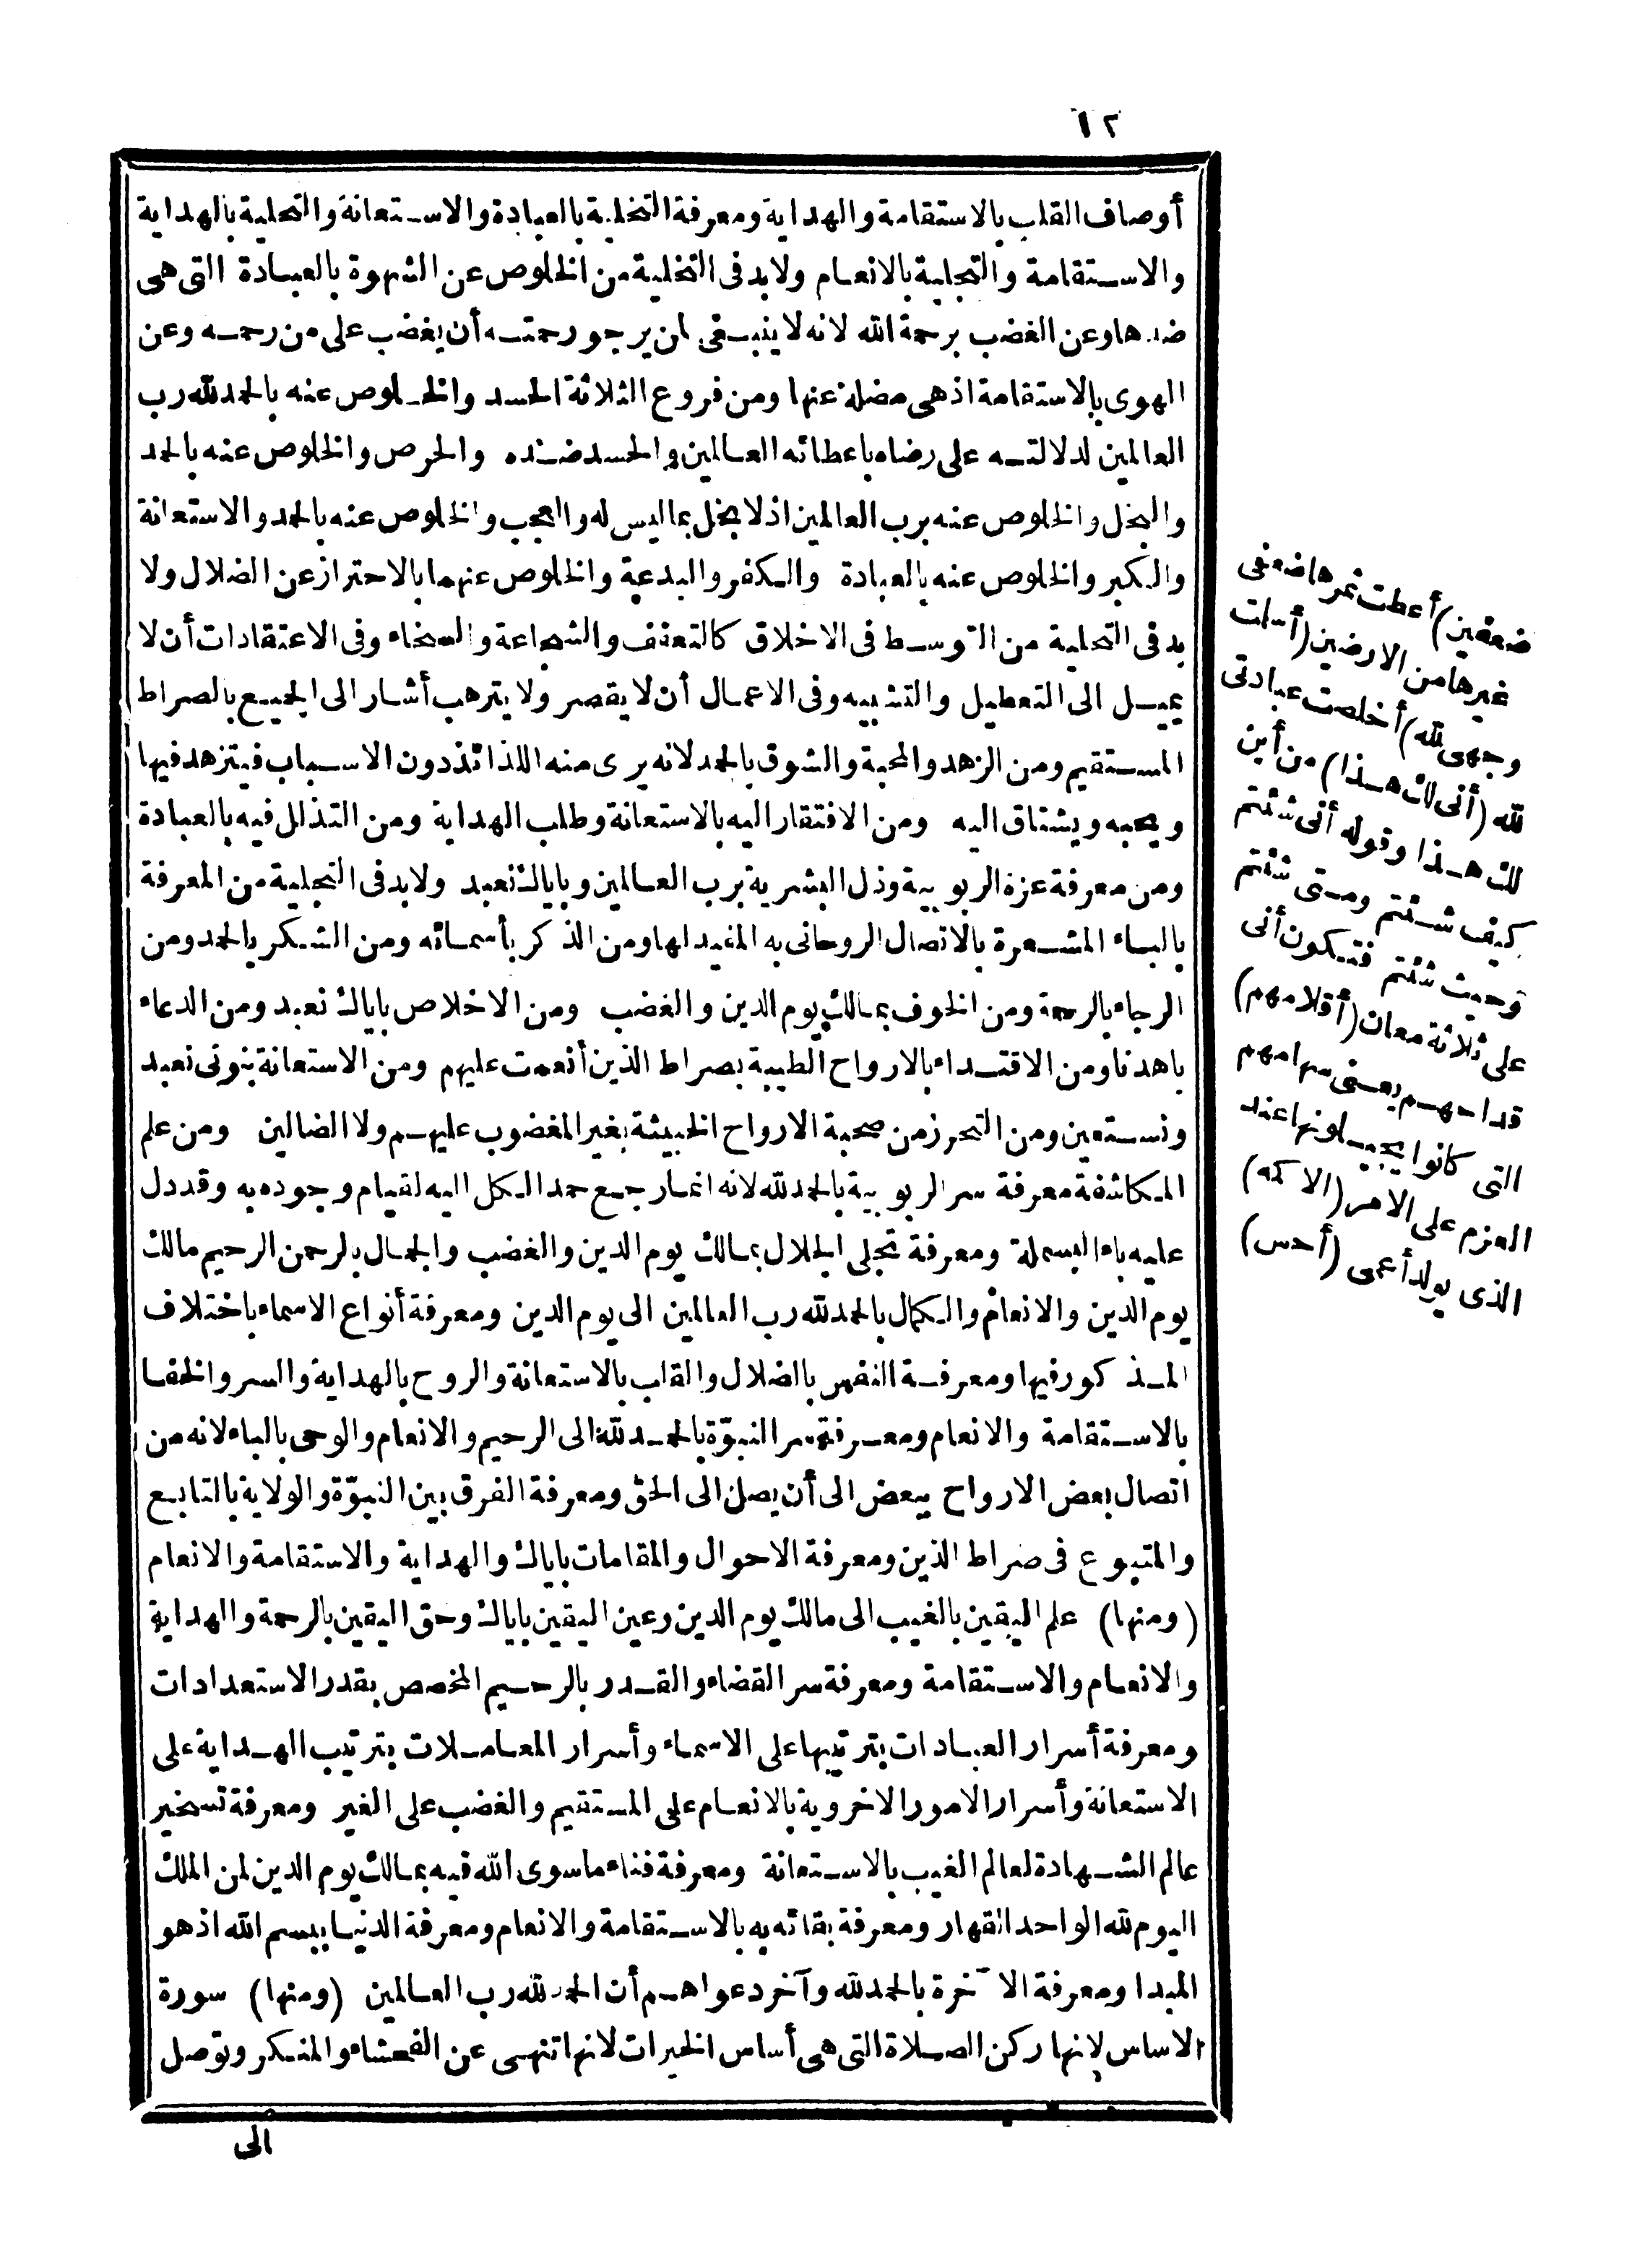 ١٢
أوصاف القلب بالاستقامة والهداية ومعرفة التخلية بالعبادة والاستعانة والتحلية بالهداية
والاستقامة والتجلية بالانعام ولا بد فى التخلية من الخلوص عن الشهوة بالعبادة التى هى
ضدها وعن الغضب برحمة الله لانه لا ينبغى لمن يرجو رحمته أن يغضب على من رحمه وعن
الهوى بالاستقامة اذ هى مضلة عنها ومن فروع الثلاثة الحسد والخلوص عنه بالحمد لله رب
العالمين لدلالته على رضاه باعطائه العالمين والحسد ضده والحرص والخلوص عنه بالحمد
والبخل والخلوص عنه برب العالمين اذ لا يبخل بما ليس له والعجب والخلوص عنه بالحمد والاستعانة
والكبر والخلوص عنه بالعبادة والكفر والبدعة والخلوص عنهما بالاحتراز عن الضلال ولا
بد فى التحلية من التوسط فى الاخلاق كالتعفف والشجاعة والسخاء وفى الاعتقادات أن لا
يميل الى التعطيل والتشبيه وفى الاعمال أن لا يقصر ولا يترهب أشار الى الجميع بالصراط
المستقيم ومن الزهد والمحبة والشوق بالحمد لانه يرى منه اللذائذ دون الاسباب فيتزهد فيها
ويحبه ويشتاق اليه ومن الافتقار اليه بالاستعانة وطلب الهداية ومن التذلل فيه بالعبادة
ومن معرفة عزة الربوبية وذل البشرية برب العالمين وباياك نعبد ولا بد فى التجلية من المعرفة
بالباء المشعرة بالاتصال الروحانى به المفيد لها ومن الذكر بأسمائه ومن الشكر بالحمد ومن
الرجاء بالرحمة ومن الخوف بمالك يوم الدين والغضب ومن الاخلاص باياك نعبد ومن الدعاء
باهدنا ومن الاقتداء بالارواح الطيبة بصراط الذين أنعمت عليهم ومن الاستعانة بنونى نعبد
ونستعين ومن التحرز من صحبة الارواح الخبيثة بغير المغضوب عليهم ولا الضالين ومن علم
المكاشفة معرفة سر الربوبية بالحمد لله لانه انما رجع حمد الكل اليه لقيام وجوده به وقد دل
عليه باء البسملة ومعرفة تجلى الجلال بمالك يوم الدين والغضب والجمال بالرحمن الرحيم مالك
يوم الدين والانعام والكمال بالحمد لله رب العالمين الى يوم الدين ومعرفة أنواع الاسماء باختلاف
المذكور فيها ومعرفة النفس بالضلال والقلب بالاستعانة والروح بالهداية والسر والخفا
بالاستقامة والانعام ومعرفة سر النبوّة بالحمد لله الى الرحيم والانعام والوحى بالباء لانه من
اتصال بعض الارواح ببعض الى أن يصل الى الحق ومعرفة الفرق بين النبوّة والولاية بالتابع
والمتبوع فى صراط الذين ومعرفة الاحوال والمقامات باياك والهداية والاستقامة والانعام
(ومنها) علم اليقين بالغيب الى مالك يوم الدين وعين اليقين باياك وحق اليقين بالرحمة والهداية
والانعام والاستقامة ومعرفة سر القضاء والقدر بالرحيم المخصص بقدر الاستعدادات
ومعرفة أسرار العبادات بترتيبها على الاسماء وأسرار المعاملات بترتيب الهداية على
الاستعانة وأسرار الامور الاخروية بالانعام على المستقيم والغضب على الغير ومعرفة تسخير
عالم الشهادة لعالم الغيب بالاستعانة ومعرفة فناء ما سوى الله فيه بمالك يوم الدين لمن الملك
اليوم لله الواحد القهار ومعرفة بقائه به بالاستقامة والانعام ومعرفة الدنيا ببسم الله اذ هو
المبدا ومعرفة الآخرة بالحمد لله وآخر دعواهم أن الحمد لله رب العالمين (ومنها) سورة
الاساس لانها ركن الصلاة التى هى أساس الخيرات لانها تنهى عن الفحشاء والمنكر وتوصل
الى
ضعفين) أعطت ثمرها ضعفى
غيرها من الارضين (أسلمت
وجهى لله) أخلصت عبادتى
لله (أنى لك هذا) من أين
لك هذا وقوله أنى شئتم
كيف شئتم ومتى شئتم
وحيث شئتم فتكون أنى
على ثلاثة معان (أقلامهم)
قداحهم يعنى سهامهم
التى كانوا يجيلونها عند
العزم على الامر (الاكمه)
الذى يولد أعمى (أحس)